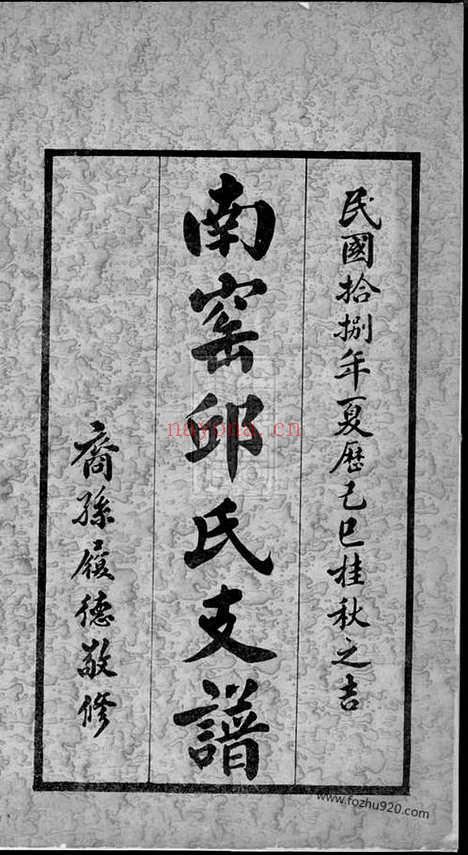 民國拾捌年夏歷己巳桂秋之吉
南窑邱氏支譜
裔孫履德敬修
nayona.cn
www.fozhu920.com